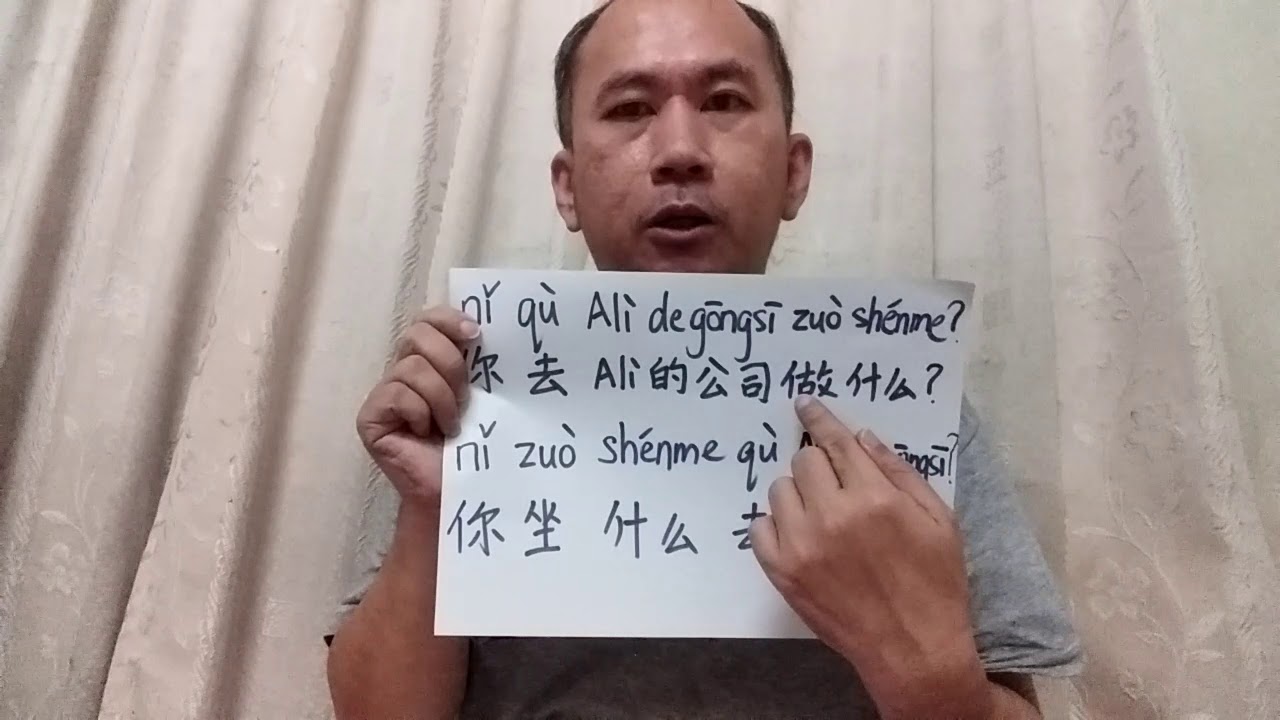 nǐ qù Alì de gōngsī zuò shénme?
你 去 Alì 的 公 司 做 什 么?
nǐ zuò shénme qù
你 坐 什 么 去